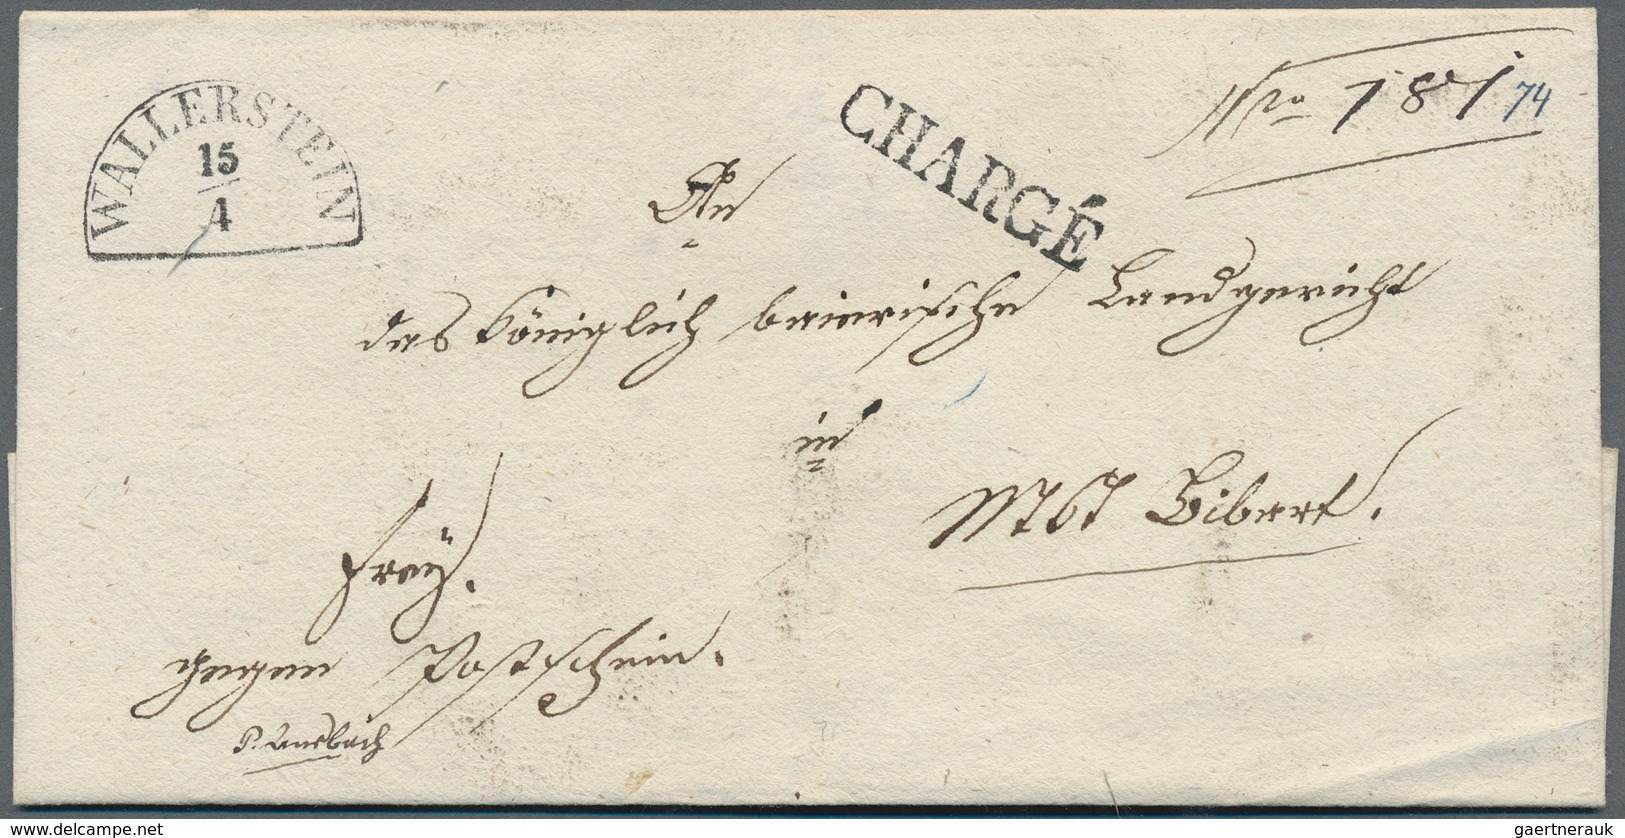 WALLERSTEIN
15
4
CHARGÉ
Nro 781
74
An
das königlich baierische Landgericht
in
Mkt Bibert.
frey.
gegen Postschein.
p. Ansbach
© www.delcampe.net
gaertnerauk